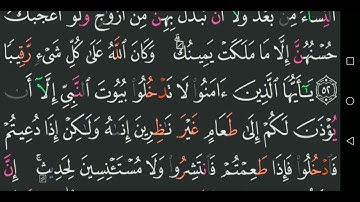 ٱلنِّسَآءُ مِنۢ بَعْدُ وَلَآ أَن تَبَدَّلَ بِهِنَّ مِنْ أَزْوَٰجٍ وَلَوْ أَعْجَبَكَ
حُسْنُهُنَّ إِلَّا مَا مَلَكَتْ يَمِينُكَ ۗ وَكَانَ ٱللَّهُ عَلَىٰ كُلِّ شَىْءٍ رَّقِيبًا
۝٥٢ يَـٰٓأَيُّهَا ٱلَّذِينَ ءَامَنُوا۟ لَا تَدْخُلُوا۟ بُيُوتَ ٱلنَّبِىِّ إِلَّآ أَن
يُؤْذَنَ لَكُمْ إِلَىٰ طَعَامٍ غَيْرَ نَـٰظِرِينَ إِنَىٰهُ وَلَـٰكِنْ إِذَا دُعِيتُمْ
فَٱدْخُلُوا۟ فَإِذَا طَعِمْتُمْ فَٱنتَشِرُوا۟ وَلَا مُسْتَـْٔنِسِينَ لِحَدِيثٍ ۚ إِنَّ